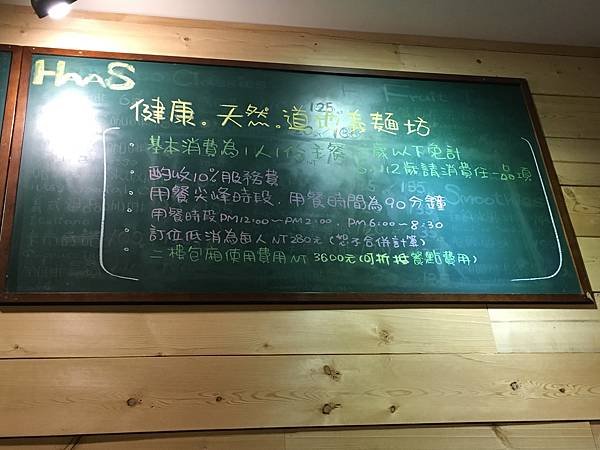 HaaS
健康。天然。道地義麵坊
基本消費為1人1份主餐 歲以下免計
6~12歲請消費任一品項
酌收10%服務費
用餐尖峰時段,用餐時間為90分鐘
用餐時段PM12:00~PM2:00,PM6:00~8:30
訂位低消為每人NT280元(恕不合併計算)
二樓包廂使用費用NT 3600元(可折抵餐點費用)
125
Fruit
185
Smoothies